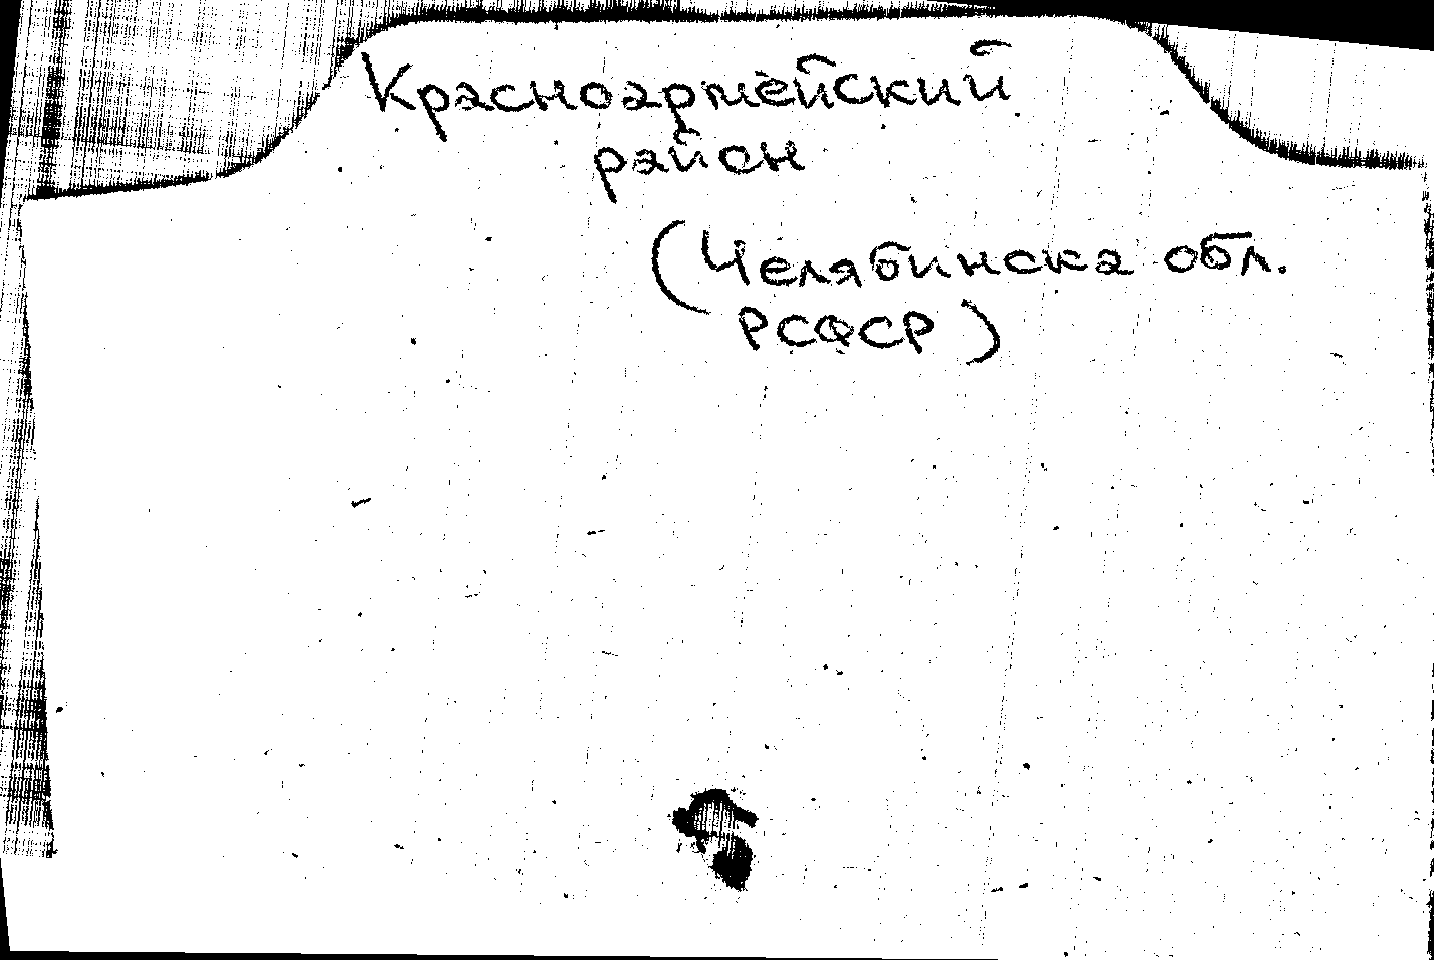 Красноармейский
район
(Челябинска обл.
РСФСР)